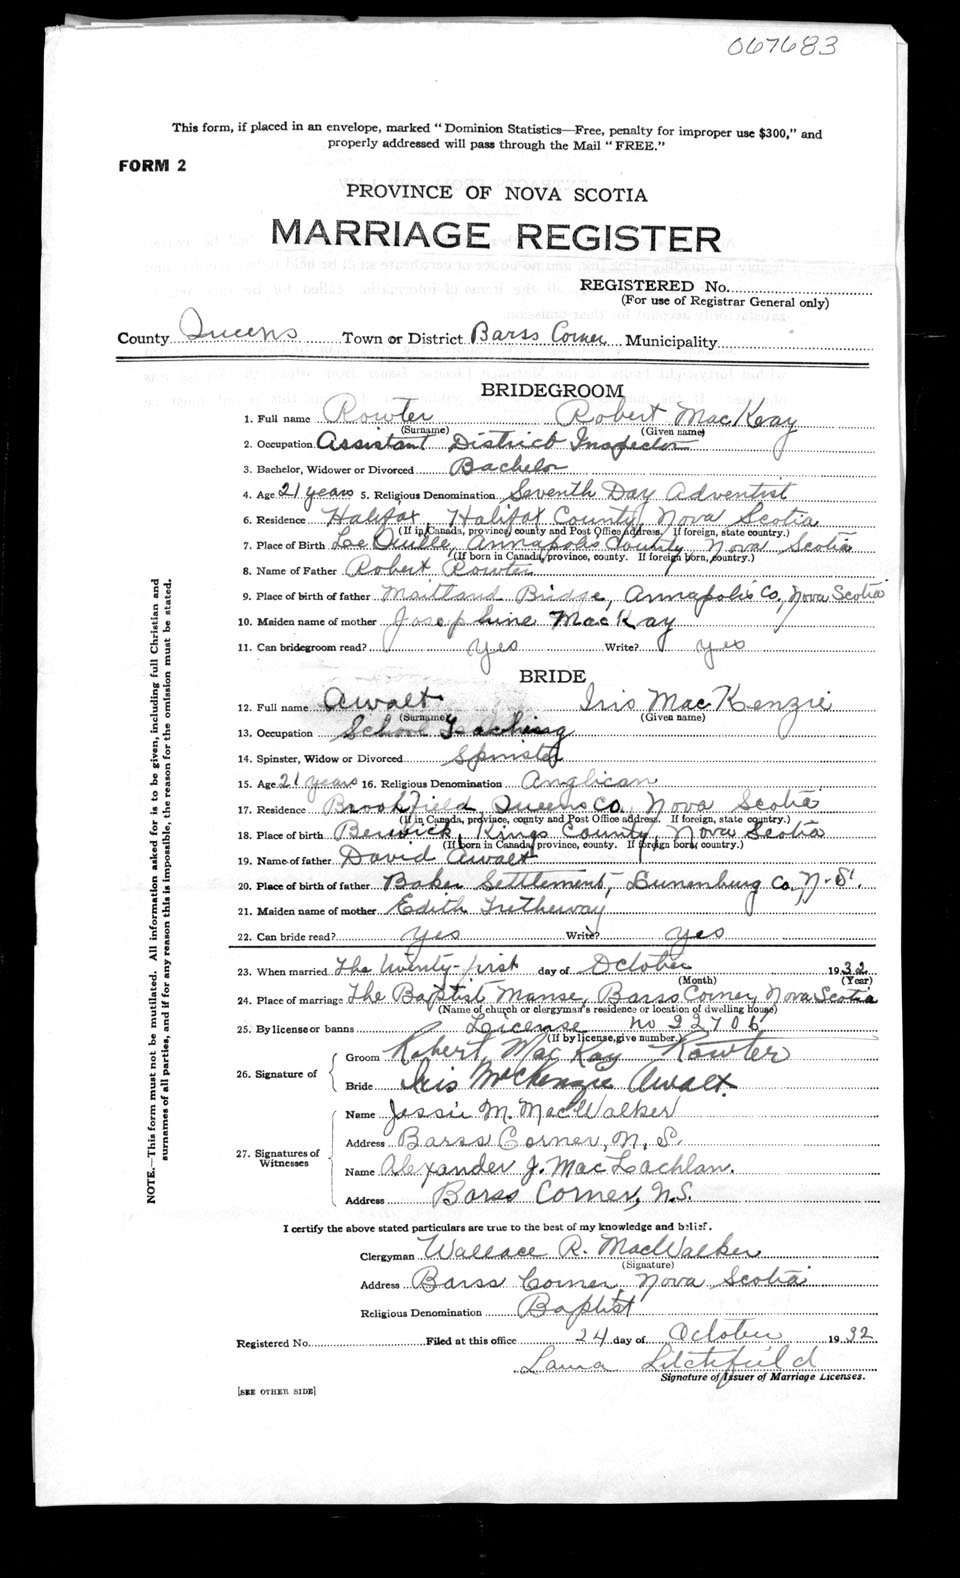 067683
This form, if placed in an envelope, marked "Dominion Statistics—Free, penalty for improper use $300," and
properly addressed will pass through the Mail "FREE."
FORM 2
PROVINCE OF NOVA SCOTIA
MARRIAGE REGISTER
REGISTERED No.
(For use of Registrar General only)
County Queens Town or District Barss Corner Municipality
BRIDEGROOM
1. Full name Rowter Robert MacKay
(Surname) (Given name)
2. Occupation Assistant District Inspector
3. Bachelor, Widower or Divorced Bachelor
4. Age 21 years 5. Religious Denomination Seventh Day Adventist
6. Residence Halifax, Halifax County, Nova Scotia
(If in Canada, province, county and Post Office address. If foreign, state country.)
7. Place of Birth Annapolis County, Nova Scotia
(If born in Canada, province, county. If foreign born, country.)
8. Name of Father Robert Rowter
9. Place of birth of father Maitland Bridge, Annapolis Co, Nova Scotia
10. Maiden name of mother Josephine MacKay
11. Can bridegroom read? yes Write? yes
BRIDE
12. Full name Awalt Iris MacKenzie
(Surname) (Given name)
13. Occupation School Teaching
14. Spinster, Widow or Divorced Spinster
15. Age 21 years 16. Religious Denomination Anglican
17. Residence Brookfield, Queens Co, Nova Scotia
(If in Canada, province, county and Post Office address. If foreign, state country.)
18. Place of birth Berwick, Kings County, Nova Scotia
(If born in Canada, province, county. If foreign born, country.)
19. Name of father David Awalt
20. Place of birth of father Baker Settlement, Lunenburg Co, N.S.
21. Maiden name of mother Edith Tretheway
22. Can bride read? yes Write? yes
23. When married The twenty-first day of October 1932
(Month) (Year)
24. Place of marriage The Baptist Manse, Barss Corner, Nova Scotia
(Name of church or clergyman's residence or location of dwelling house)
25. By license or banns License no 22706
(If by license, give number.)
26. Signature of
Groom Robert MacKay Rowter
Bride Iris MacKenzie Awalt.
27. Signatures of Witnesses
Name Jessie M. MacWalker
Address Barss Corner, N.S.
Name Alexander J. MacLachlan.
Address Barss Corner, N.S.
I certify the above stated particulars are true to the best of my knowledge and belief.
Clergyman Wallace R. MacWalker
(Signature)
Address Barss Corner, Nova Scotia
Religious Denomination Baptist
Registered No. Filed at this office 24 day of October 1932
Laura Litchfield
Signature of Issuer of Marriage Licenses.
[SEE OTHER SIDE]
NOTE.—This form must not be mutilated. All information asked for is to be given, including full Christian and
surnames of all parties, and if for any reason this is impossible, the reason for the omission must be stated.